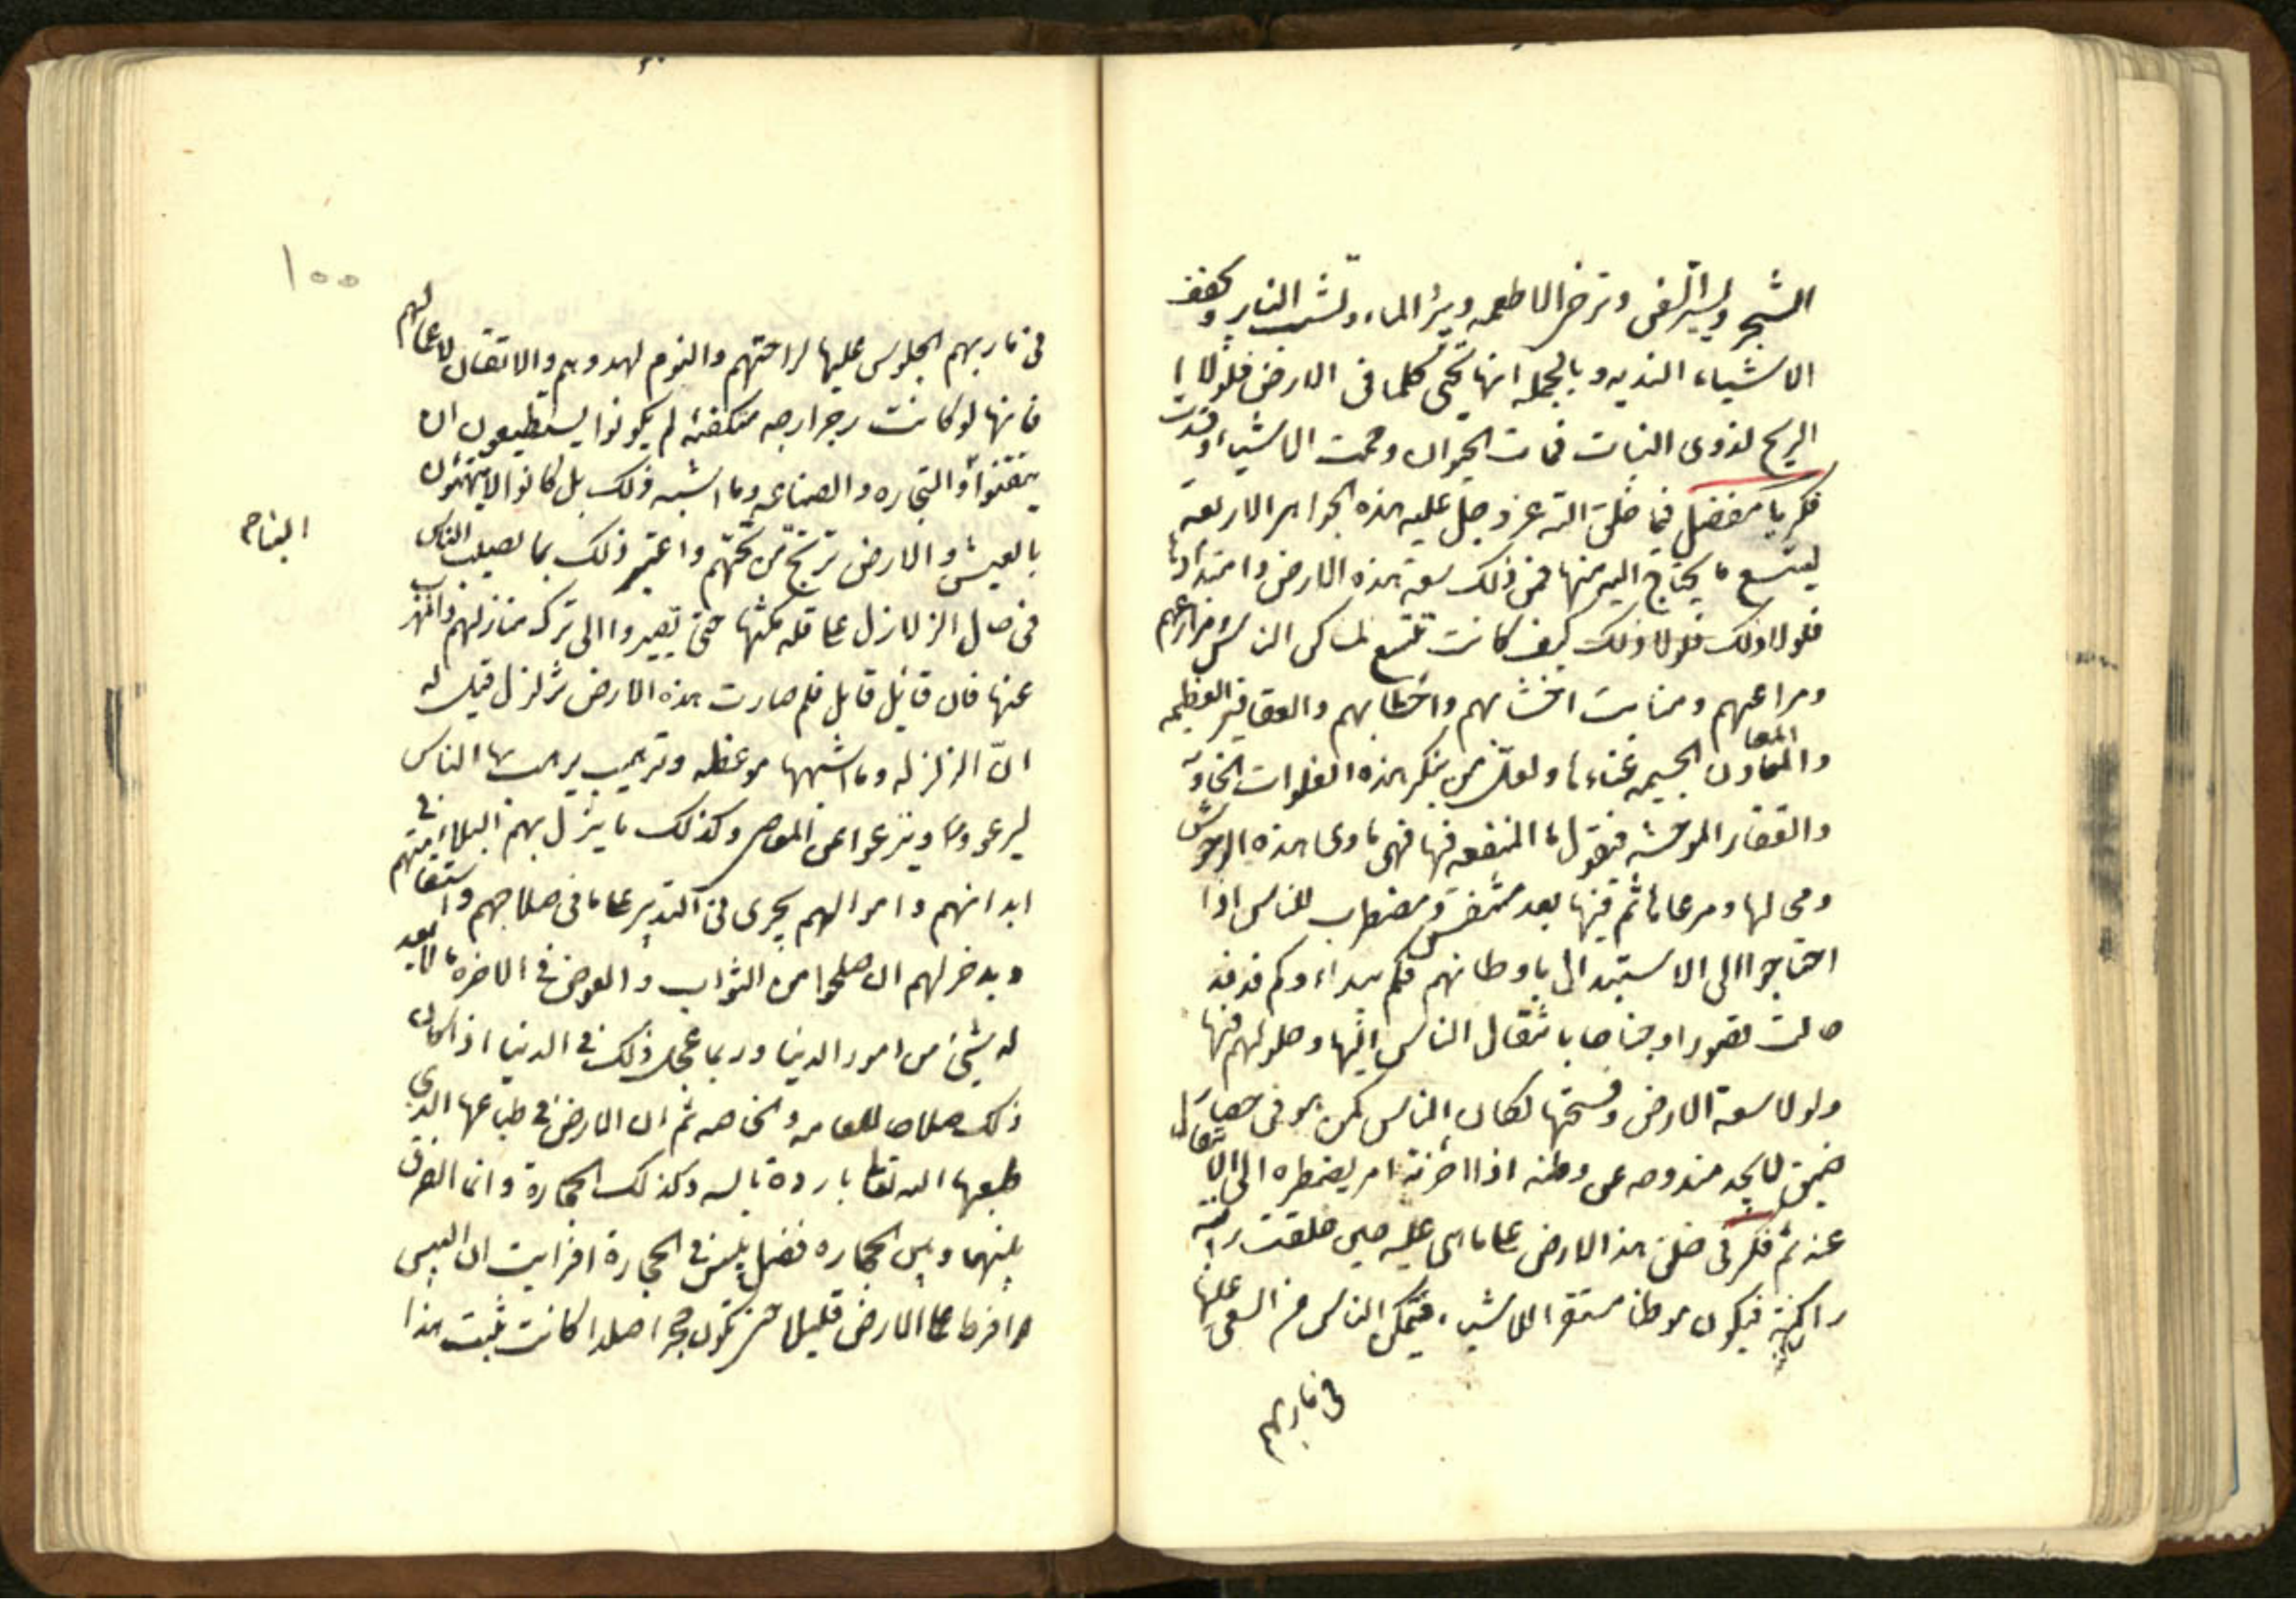 الشجر ويسير السفن وترخى الاطعمه ويبرد الماء وتشب النار ويجفف
الاشياء النديه وبالجمله انها تحيى كلما فى الارض فلولا
الريح لذوى النبات فمات الحيوان وحمت الاشياء وفسدت
فكر يا مفضل فيما خلق الله عز وجل عليه هذه الجواهر الاربعة
ليتسع ما يحتاج اليه منها فمن ذلك سعة هذه الارض وامتدادها
فلولا ذلك فلولا ذلك كيف كانت تتسع لمساكن الناس ومزارعهم
ومراعيهم ومنابت اخشابهم واحطابهم والعقاقير العظيمه
والمعادن الجسيمه غناءها ولعل من ينكر هذه الفلوات الخاويه
والقفار الموحشه فيقول ما المنفعه فيها فهى ماوى هذه الوحوش
ومحالها ومرعاها ثم فيها بعد متنفس ومضطرب للناس اذا
احتاجوا الى الاستبدال باوطانهم فكم بيداء وكم فدفد
حالت قصورا وجنانا بانتقال الناس اليها وحلولهم فيها
ولولا سعة الارض وفسحتها لكان الناس كمن هو فى حصار
ضيق لا يجد مندوحه عن وطنه اذا احزنه امر يضطره الى الانتقال
عنه ثم فكر فى خلق هذا الارض على ما هى عليه حين خلقت راتبة
راكنة فيكون موطنا مستقرا للاشياء فيتمكن الناس من السعى عليها
فى ماربهم
١٠٠
فى ماربهم الجلوس عليها لراحتهم والنوم لهدوهم والاتقان لاعمالهم
فانها لو كانت رجراجه متكفئه لم يكونوا يستطيعون ان
يتقنوا والتجاره والصناعه وما اشبه ذلك بل كانوا لا يتهنئون
البناء
بالعيش والارض ترتج من تحتهم واعتبر ذلك بما يصيب الناس
فى حال الزلازل على قلة مكثها حتى يصيروا الى ترك منازلهم والهرب
عنها فان قائل قايل فلم صارت هذه الارض تزلزل قيل له
ان الزلزله وما اشبهها موعظه وترهيب يرهب بها الناس
ليرعووا وينزعوا عن المعاصى وكذلك ما ينزل بهم من البلاء فى
ابدانهم واموالهم يجرى فى التدبير على ما فى صلاحهم واستقامتهم
ويدخر لهم ان صلحوا من الثواب والعوض فى الاخره ما لا يعدله
له شيئ من امور الدنيا وربما عجل ذلك فى الدنيا اذا كان
ذلك صلاحا للعامه والخاصه ثم ان الارض فى طباعها الذى
طبعها الله تعالى باردة يابسه وكذلك الحجارة وانما الفرق
بينهما وبين الحجاره فضل يبس فى الحجارة افرايت ان اليبس
افرط على الارض قليلا حتى تكون حجرا صلدا كانت تنبت هذا